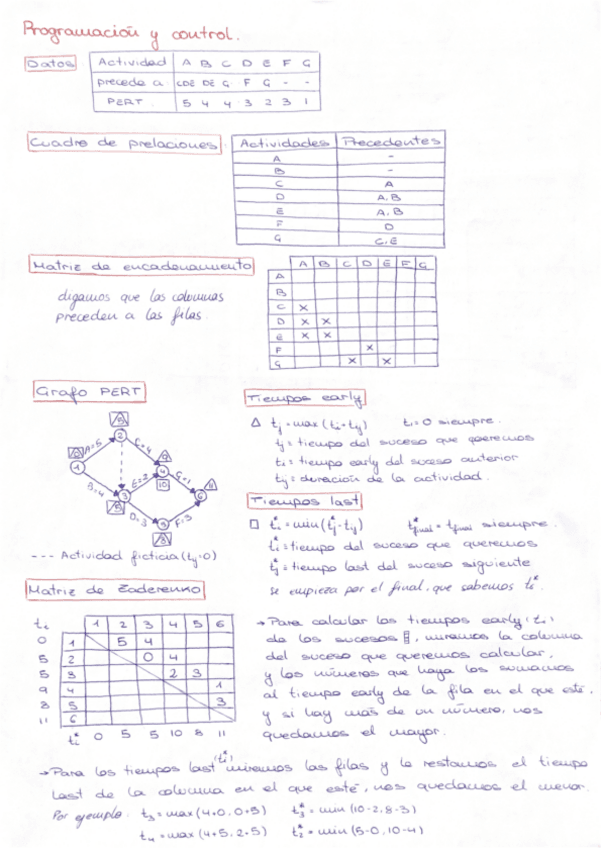 Programación y control.
Datos
Actividad A B C D E F G
precede a CDE DE G F G - -
PERT 5 4 4 3 2 3 1
Cuadro de prelaciones
Actividades Precedentes
A -
B -
C A
D A,B
E A,B
F D
G C,E
Matriz de encadenamiento
digamos que las columnas
preceden a las filas.
A B C D E F G
A
B
C X
D X X
E X X
F X
G X X
Grafo PERT
A=5
C=4
B=4
E=2
G=1
D=3
F=3
1 2 3 4 5 6
10
--- Actividad ficticia (tij=0)
Tiempos early
Δ tj = max (ti + tij) t1 = 0 siempre.
tj = tiempo del suceso que queremos
ti = tiempo early del suceso anterior
tij = duración de la actividad.
Tiempos last
□ ti* = min (tj* - tij) t*final = tfinal siempre.
ti* = tiempo del suceso que queremos
tj* = tiempo last del suceso siguiente
se empieza por el final, que sabemos
Matriz de Zaderenko
ti 1 2 3 4 5 6
0 1 5 4
5 2 0 4
5 3 2 3
9 4 1
8 5 3
11 6
ti* 0 5 5 10 8 11
→ Para calcular los tiempos early (ti)
de los sucesos, miramos la columna
del suceso que queremos calcular,
y los números que haya los sumamos
al tiempo early de la fila en el que esté,
y si hay más de un número, nos
quedamos el mayor.
→ Para los tiempos last (ti*) miremos las filas y le restamos el tiempo
last de la columna en el que esté, nos quedamos el menor.
Por ejemplo: t3 = max (4+0, 0+5) t3* = min (10-2, 8-3)
t4 = max (4+5, 2+5) t2* = min (5-0, 10-4)